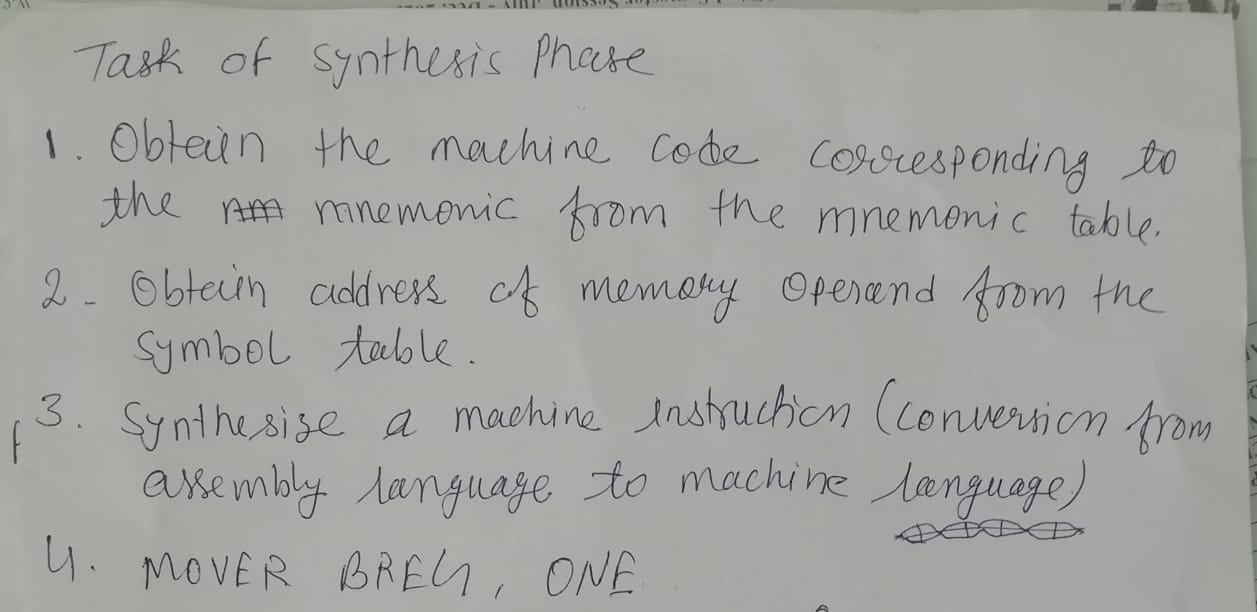 Task of Synthesis Phase
1. Obtain the machine code corresponding to
the mnemonic from the mnemonic table.
2- Obtain address of memory operand from the
Symbol table.
3. Synthesize a machine instruction (conversion from
assembly language to machine language)
4. MOVER BREG, ONE